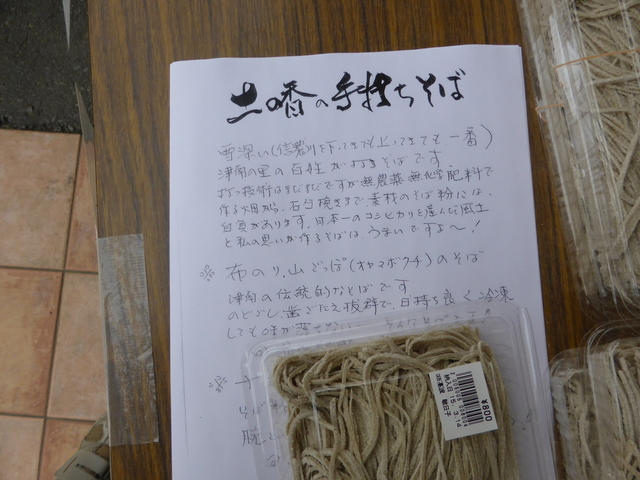 土の香の手持ちそば
雪深い(信濃川を下ってきても上ってきても一番)
津南の里の百姓がおるそばです。
打つ技術はまだまだですが無農薬無化学肥料で
作る畑から、石臼挽きまで、素材のそば粉には、
自負があります。日本一のコシヒカリを産んだ風土
と私の思いが作るそばは、うまいですよ〜!
※ 布のり、山ごっぽ(オヤマボクチ)のそば
津南の伝統的なそばです
のどごし、歯ごたえ抜群で、日持ち良く、冷凍
しても味が落ちない
そば
¥800
納入日 15. 3.14